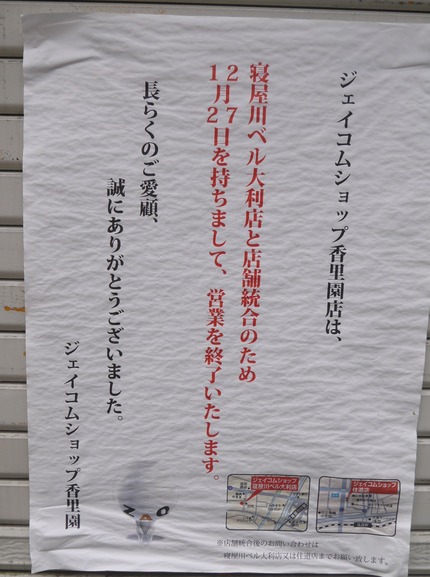 ジェイコムショップ香里園店は、
寝屋川ベル大利店と店舗統合のため
２７
１月２日を持ちまして、営業を終了いたします。
長らくのご愛顧、
誠にありがとうございました。
ジェイコムショップ香里園
ジェイコムショップ
寝屋川ベル大利店
ジェイコムショップ
住道店
※店舗統合後のお問い合わせは
寝屋川ベル大利店又は住道店までお願い致します。